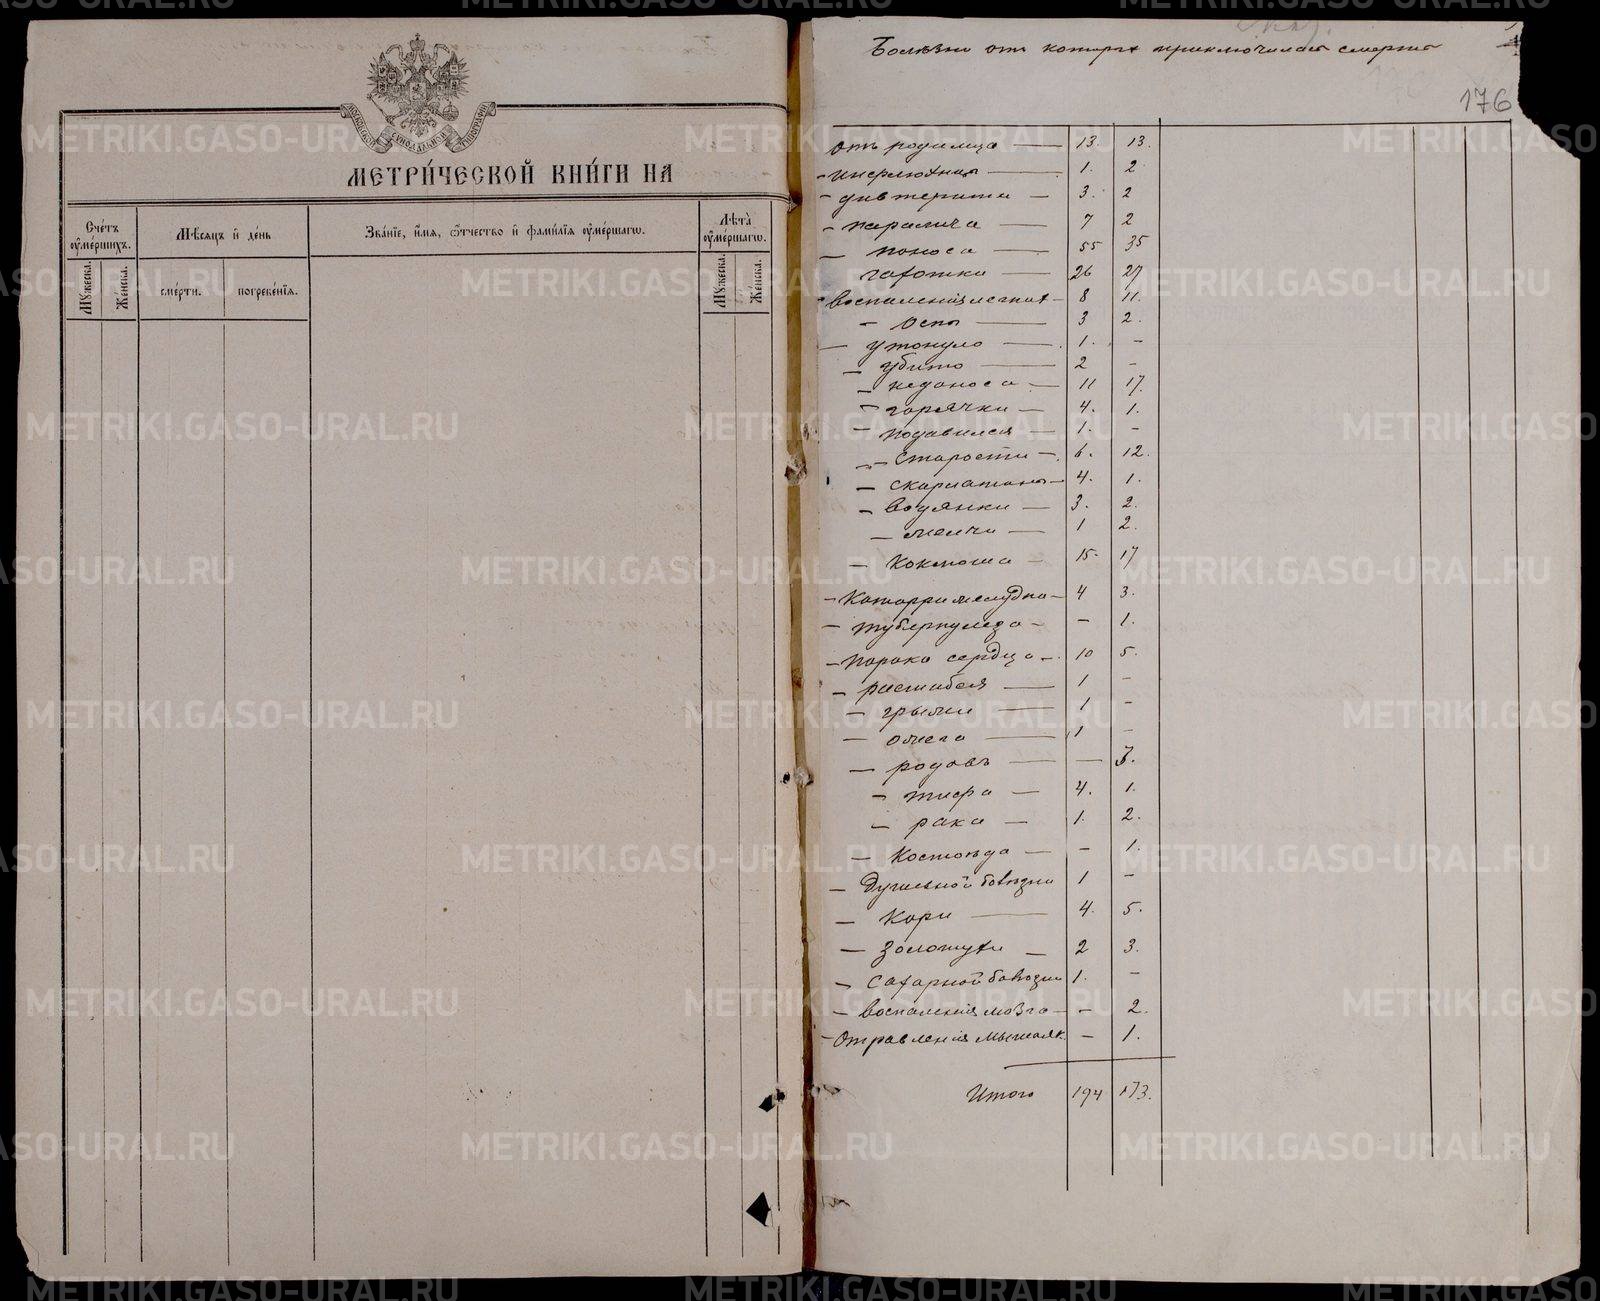 МОСКОВСКОЙ СѴНОДАЛЬНОЙ ТИПОГРАФІИ
МЕТРИ́ЧЕСКОЙ КНИ́ГИ НА
Сче́тъ ᲂу҆ме́ршихъ.
Мѣ́сяцъ и҆ де́нь
Зва́нїе, и҆́мя, ѻ҆́тчество и҆ фами́лїя ᲂу҆ме́ршагѡ.
Лѣ́та ᲂу҆ме́ршагѡ.
Му́жеска. Же́нска. сме́рти. погребе́нїя. Му́жеска. Же́нска.
Болѣзни отъ которыхъ приключилась смерть
176
Отъ родимца — 13. 13.
- инфлюэнцы — 1. 2
- дивтерита — 3. 2
- паралича — 7 2
- поноса — 55 35
чахотки — 26 27
- воспаленія легких — 8 11.
- Оспы — 3 2.
- утонуло — 1. -
- убито — 2 -
- недоноса — 11 17.
- горячки — 4. 1.
- подавился — 1. -
- Старости — 6. 12.
- скарлатины — 4. 1.
- водянки — 3. 2.
- 1 2.
- Коклюша - 15. 17
- Катарри желудка - 4 3.
- туберкулеза - - 1.
- порока сердца - 10 5.
- расшибся — 1 -
- грыжи — 1 -
- ожега — 1 -
- родовъ — —
- тифа — 4. 1.
- рака — 1. 2.
- Костоѣда — - 1.
- Душевной болѣзни 1 -
- Кори — 4. 5.
- Золотухи — 2 3.
- Сахарной болѣзни 1. -
- воспаленія мозга - - 2.
- Отравленія мышьяк. - 1.
Итого 194 173.
METRIKI.GASO-URAL.RU